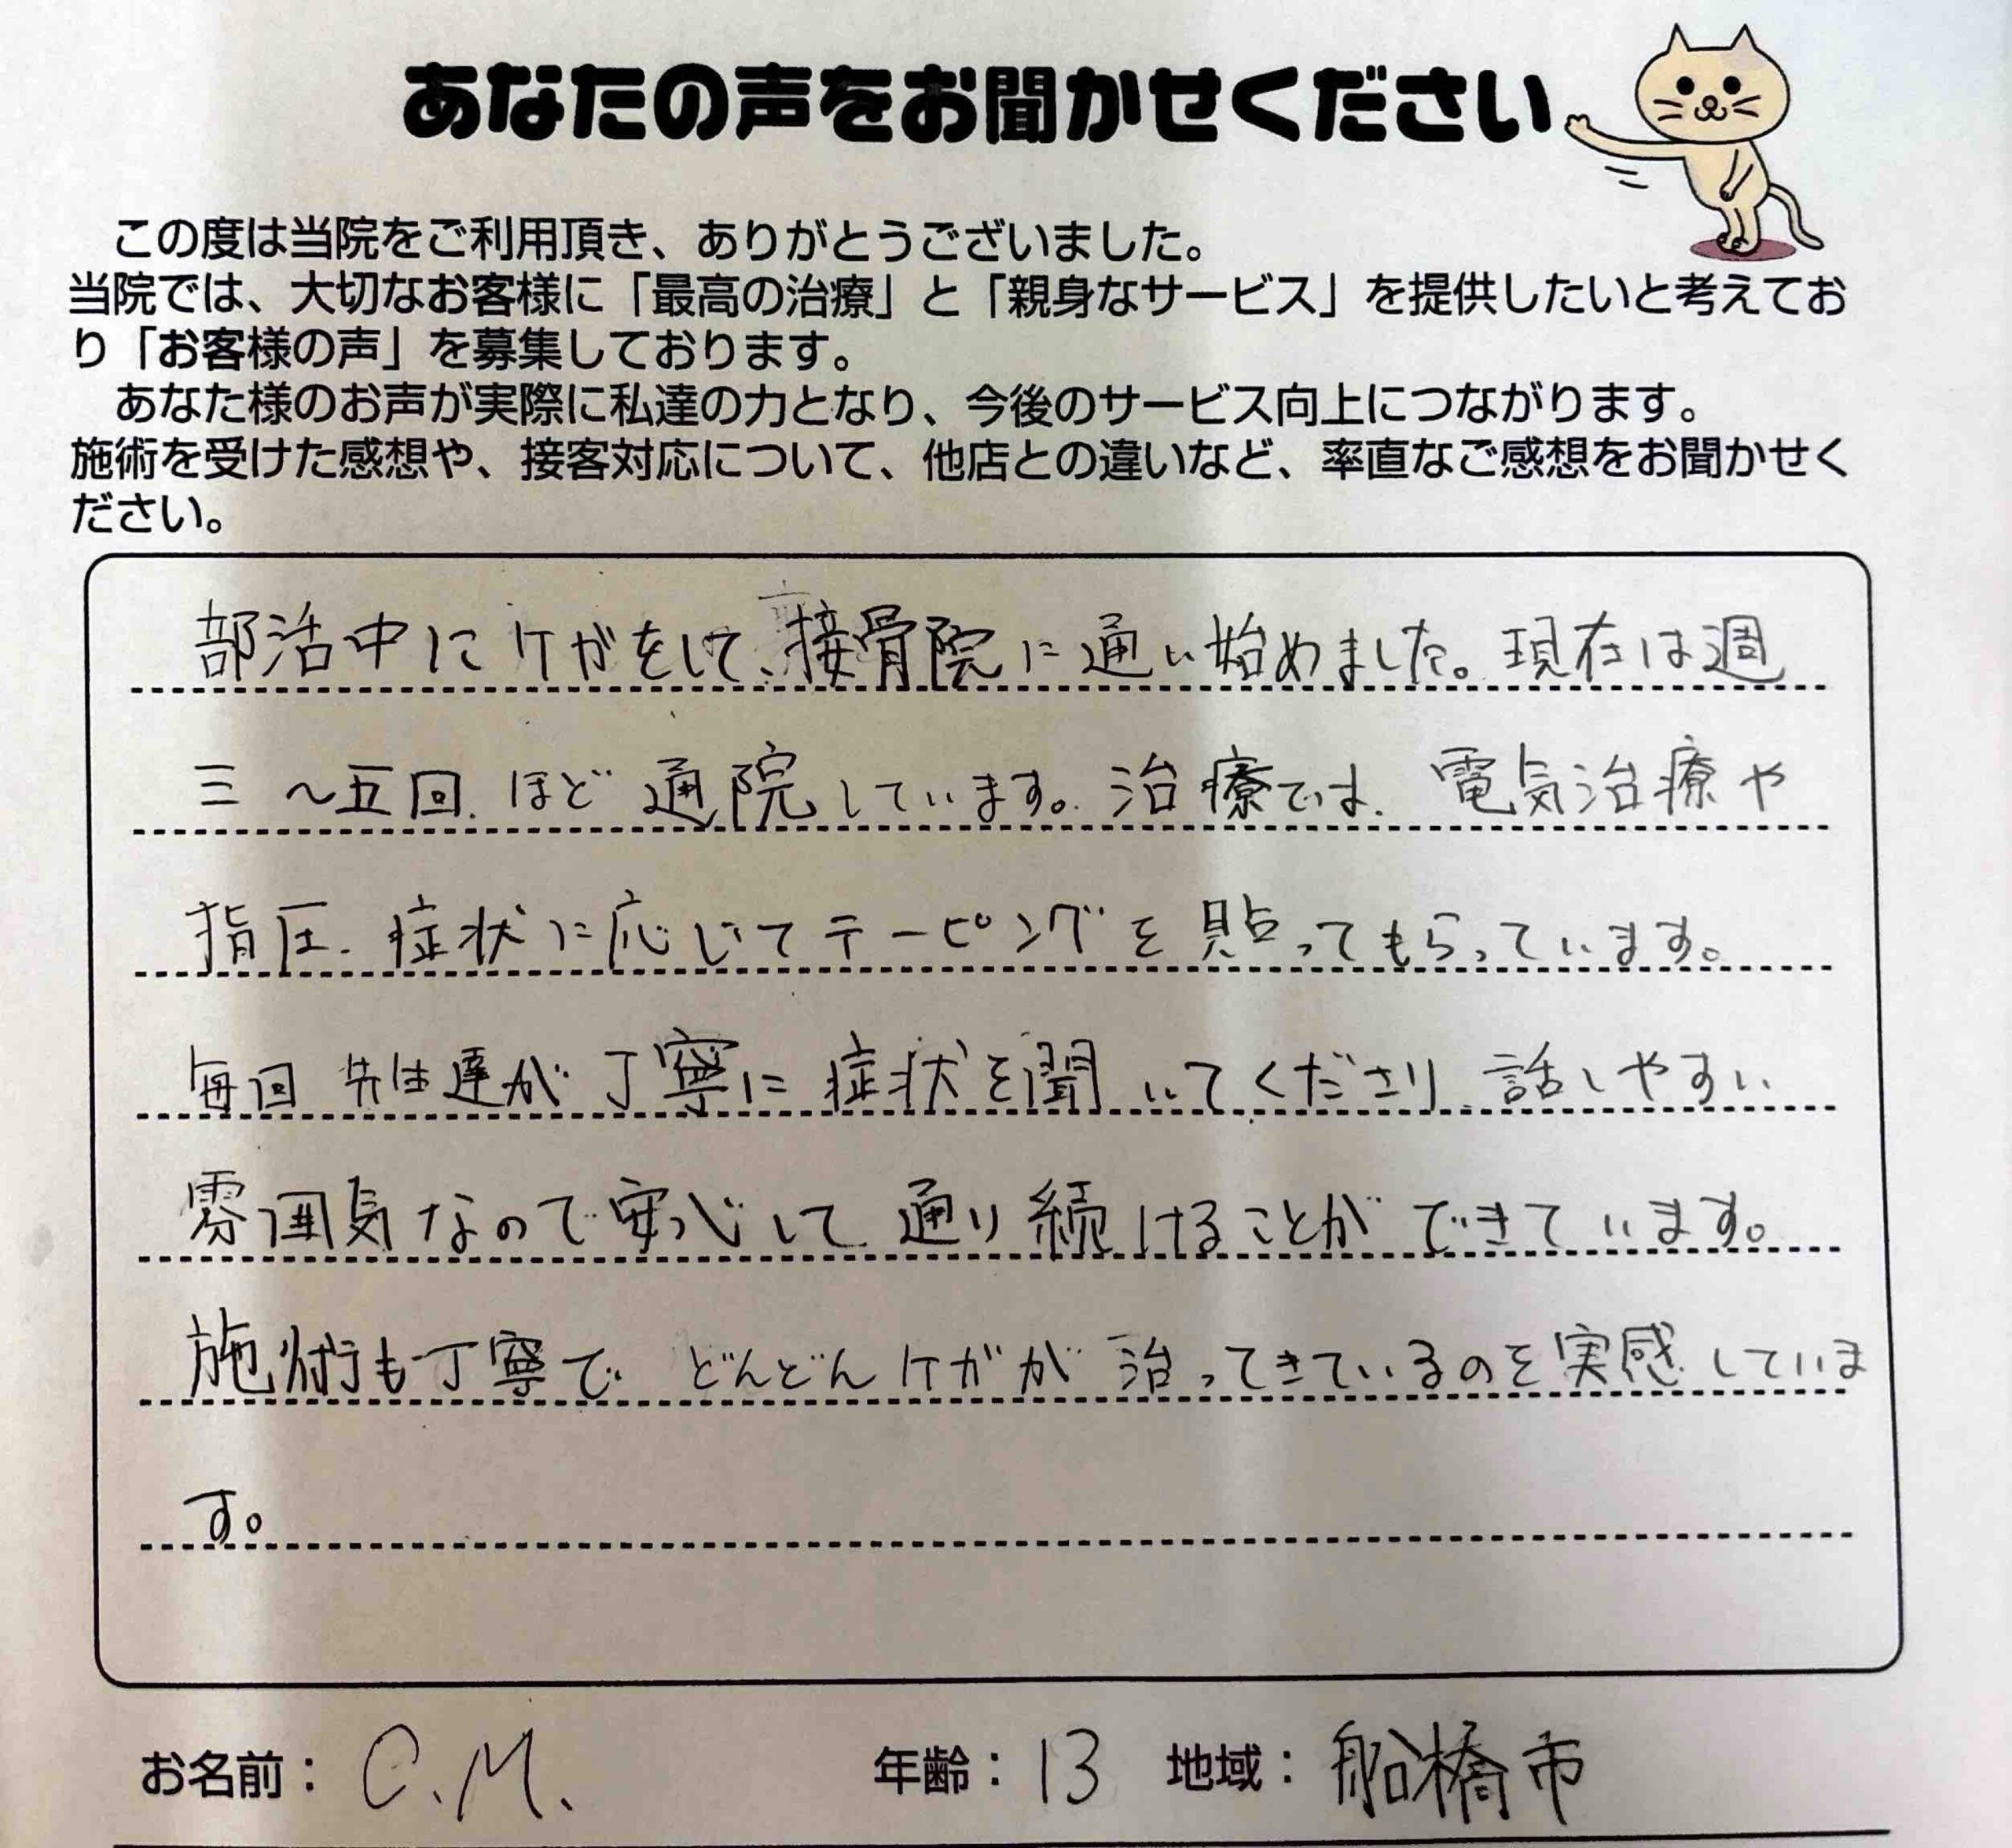 あなたの声をお聞かせください
この度は当院をご利用頂き、ありがとうございました。
当院では、大切なお客様に「最高の治療」と「親身なサービス」を提供したいと考えてお
り「お客様の声」を募集しております。
あなた様のお声が実際に私達の力となり、今後のサービス向上につながります。
施術を受けた感想や、接客対応について、他店との違いなど、率直なご感想をお聞かせく
ださい。
部活中にケガをして、接骨院に通い始めました。現在は週
三〜五回、ほど通院しています。治療では、電気治療や
指圧、症状に応じてテーピングを貼ってもらっています。
毎回先生達が丁寧に症状を聞いてくださり、話しやすい
雰囲気なので安心して通り続けることができています。
施術も丁寧で、どんどんケガが治ってきているのを実感していま
す。
お名前：C.M.　年齢：13　地域：船橋市